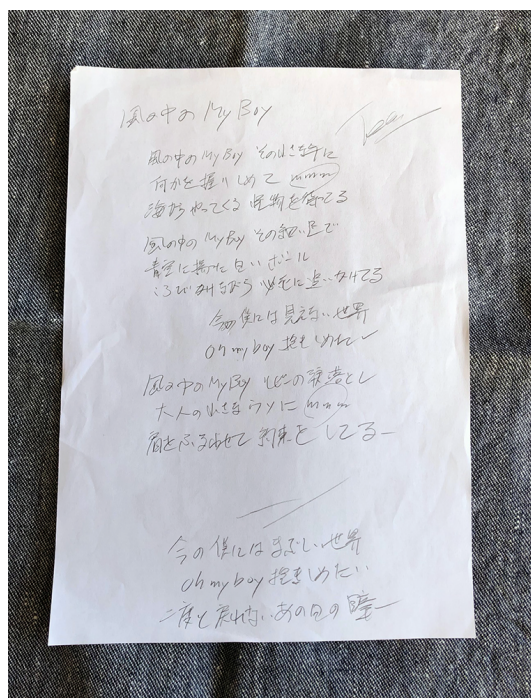 風の中の My Boy
風の中の My Boy その小さな手に
何かを握りしめて mmm
海からやってくる 怪物を待ってる
風の中の My Boy その短い足で
青空に揚げた 白いボール
ころびながら 必死に追いかけてる
今の僕には見えない世界
oh my boy 抱きしめたい
風の中の My Boy の涙落とし
大人の小さなウソに mmm
肩をふるわせて 約束を してるー
今の僕にはまぶしい世界
oh my boy 抱きしめたい
二度と戻れない あの日の瞳ー